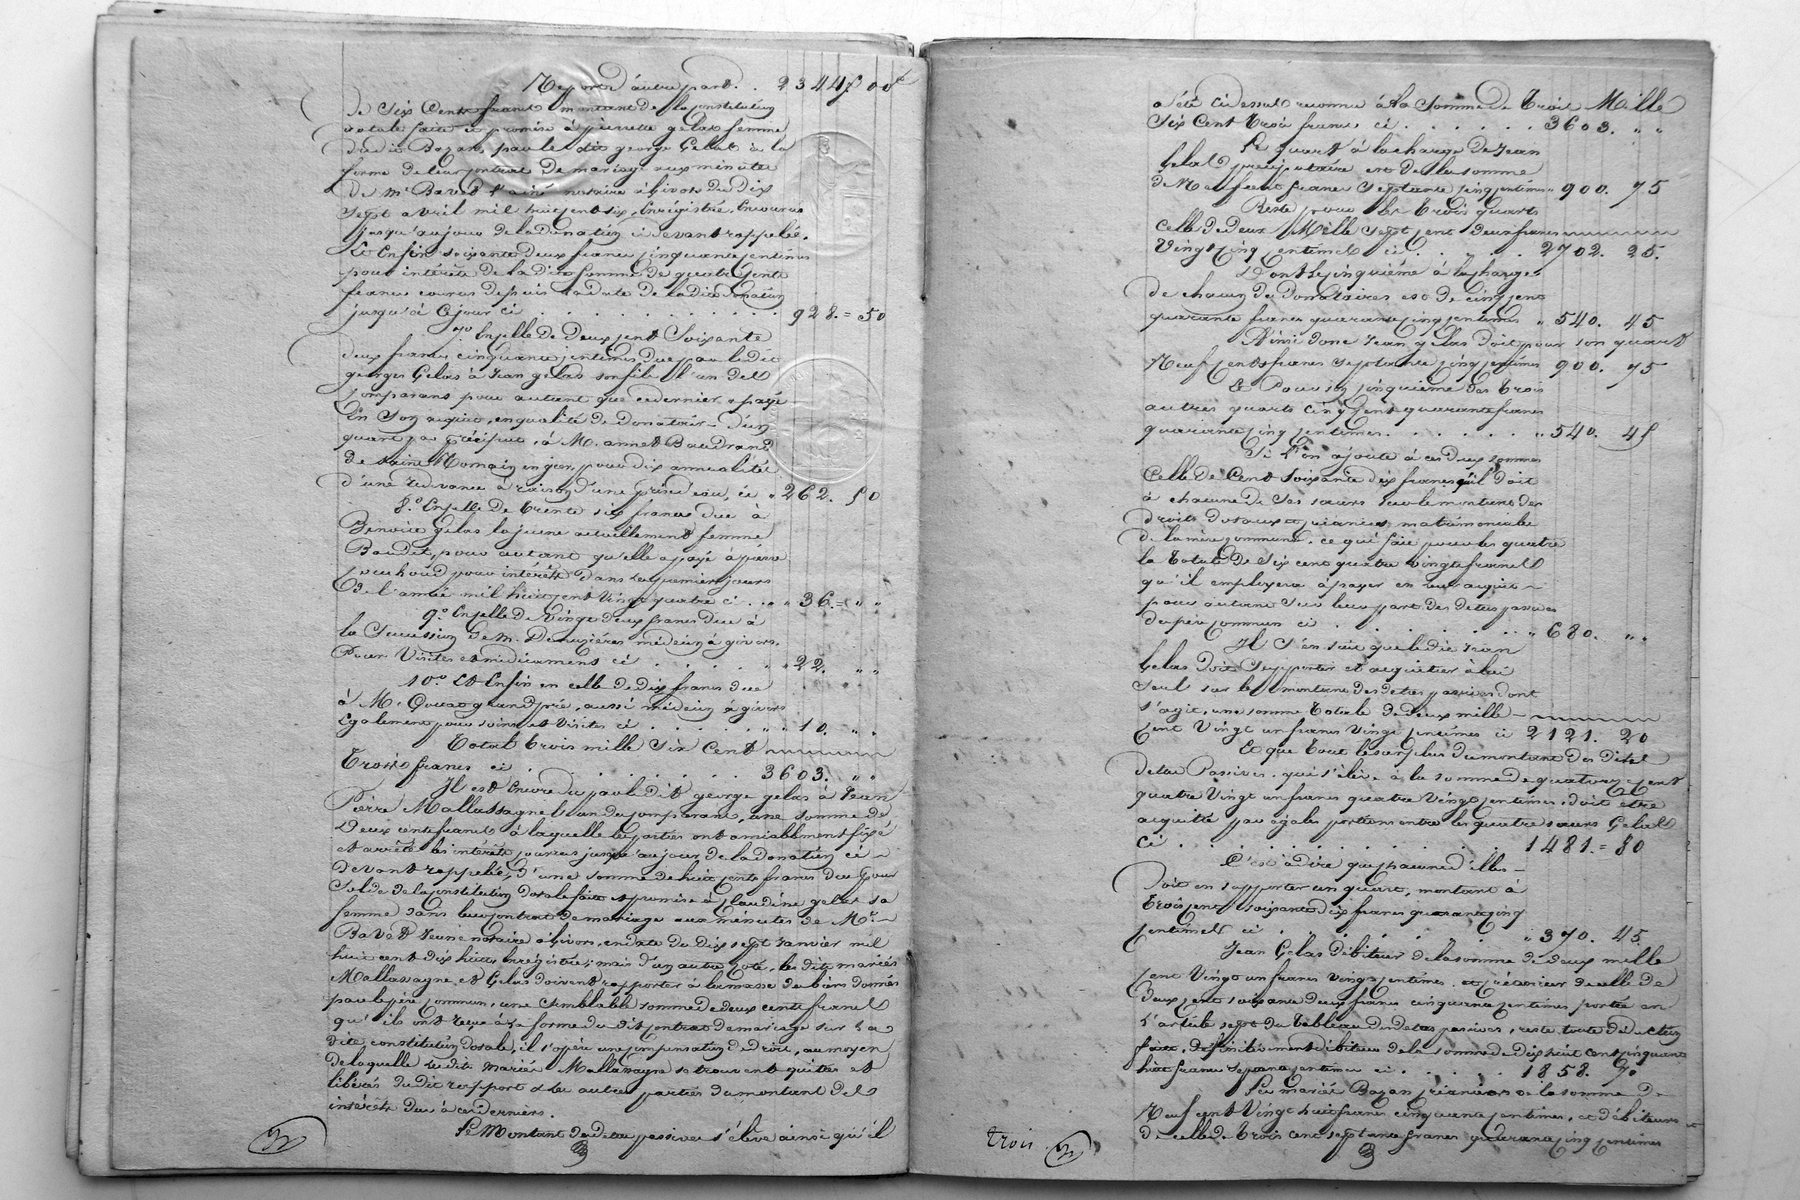 Report d'autre part. . 2344f 00c
de Six Cents francs montant de la constitution
dotale faite et promise à pierrette gelas femme
dudit Bazan, par le dit george Gelas à la
forme de leur contrat de mariage aux minutes
de Me Bavet l'ainé notaire à Givors du dix
Sept avril mil huit cent six, Enrégistré, Encourus
jusqu'au jour de la Donation ci devant rappelée.
Et Enfin soixante deux francs cinquante centimes
pour intérêts de la dite somme de quatre Cents
francs courus depuis la date de la dite Donation
jusqu'à Cejour ci . . . . . . . . . . 928. = 50
7o Encelle de Deux cent Soixante
deux francs cinquante centimes due par le dit
georges Gelas à Jean gelas son fils l'un des
Comparans pour autant que ce dernier a payé
En Son acquit, en qualité de Donataire d'un
quart par Préciput, à M. annet Baudrand
de Saint Romain en gier, pour dix annualités
d'une redevance à raison d'une prise d'eau, ci " 262. 50
8o Encelle de trente six francs due à
Benoite Gelas la jeune actuellement femme
Baudet, pour autant qu'elle a payé à pierre
pour intérêts dans les premiers jours
de l'année mil huit cent vingt quatre ci . . " 36. = " "
9o Encelle de Vingt deux francs due à
la Succession de M. Demuzières médecin à givors,
Pour Visites et médicaments ci . . . . " 22. " "
10o Et Enfin en celle de dix francs due
à M. grandpré, aussi médecin à givors
Egalement pour soins et visites ci . . . . " " 10. " "
Total trois mille Six Cent
Trois francs ci . . . . . . . . . 3603. " "
Il est Encore du par le dit george gelas à Jean
Pierre Mallassagne l'un du comparans, une somme de
Deux cents francs à laquelle les parties ont amiablement fixé
et arrêté les intérêts courus jusqu'au jour de la donation ci
devant rappelée, d'une somme de huit cents francs due pour
Solde de la constitution dotale faite et promise à Claudine gelas sa
femme dans leur contrat de mariage aux minutes de Me
Bavet Jeune notaire à Givors, en date du dix sept Janvier mil
huit cent dix huit, Enrégistré; mais d'un autre coté, les dits mariés
Mallassagne et Gelas doivent rapporter à la masse des biens donnés
par le père commun, une semblable somme de deux cents francs
qu'ils ont reçue à la forme du dit contrat de mariage sur la
dite constitution dotale, il s'opère une compensation de droit, au moyen
de laquelle les dits mariés Mallassagne se trouvent quittes et
libérés du dit rapport et les autres parties du montant des
intérêts dus à ces derniers.
Le Montant des dettes passives s'élève ainsi qu'il
a été ci dessus reconnu à la Somme de trois Mille
Six Cent trois francs ci . . . . . . 3603. " "
Le quart à la charge de Jean
Gelas Préciputaire est de la somme
de Neuf cent francs Septante cinq centimes " 900. 75
Reste pour les trois quarts
Celle de deux Mille Sept cent deux francs
Vingt cinq centimes ci . . . . . 2702. 25.
Dont le cinquième à la charge
de chacun des Donataires est de cinq cent
quarante francs quarante cinq centimes " 540. 45
Ainsi donc Jean gelas doit pour son quart
Neuf cents francs septante cinq centimes 900. 75
Et Pour son cinquième des trois
autres quarts cinq cent quarante francs
quarante cinq centimes. . . . . . . " 540. 45
Si l'on ajoute à ces deux sommes
Celle de Cent soixante dix francs qu'il doit
à chacune de Ses sœurs pour le montant des
droits dotaux et créances matrimoniales
de la mère commune, ce qui fait pour les quatre
la totalité de Six cent quatre vingts francs
qu'il employera à payer en leur acquit
pour autant sur leur part des dettes passives
du père commun ci . . . . . . . " 680. " "
Il s'en suit que le dit Jean
Gelas doit Supporter et acquitter à lui
Seul sur le montant des dettes passives dont
s'agit, une somme totale de Deux mille
Cent Vingt un francs Vingt centimes ci 2121. 20
Et que tout le surplus du montant des dites
dettes Passives qui s'élève à la somme de quatorze cent
quatre Vingt un francs quatre Vingt centimes, doit être
acquitté par égales portions entre les quatre sœurs Gelas
Ci . . . . . . . . . . . . . . 1481. = 80
C'est à dire que chacune d'elles
Doit en supporter un quart, montant à
trois cent soixante dix francs quarante cinq
centimes ci . . . . . . . . . " 370. 45
Jean Gelas débiteur de la somme de deux mille
Cent Vingt un francs vingt centimes, et créancier de celle de
Deux cent soixante deux francs cinquante centimes portée en
l'article sept du tableau des dettes passives, reste toute déduction
faite, définitivement débiteur de la somme de Dix huit cent cinquante
huit francs septante centimes ci . . . . . 1858. 70
Les mariés Bazan créanciers de la somme de
Neuf cent Vingt huit francs cinquante centimes, et débiteurs
de celle de trois cent septante francs quarante cinq centimes
trois